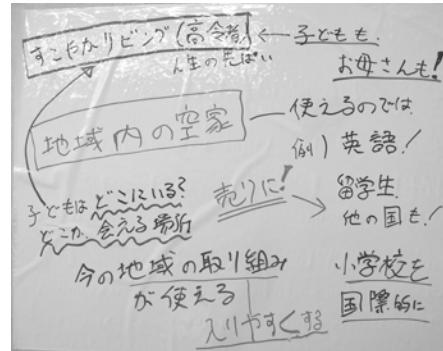 すこやかリビング(高令者) ← 子どもも.
人生の先ぱい
お母さんも!
地域内の空家 — 使えるのでは
例) 英語!
子どもはどこにいる?
どこか会える場所
売りに!
→ 留学生.
他の国も!
今の地域の取り組み
が使える
入りやすくする
小学校を
国際的に